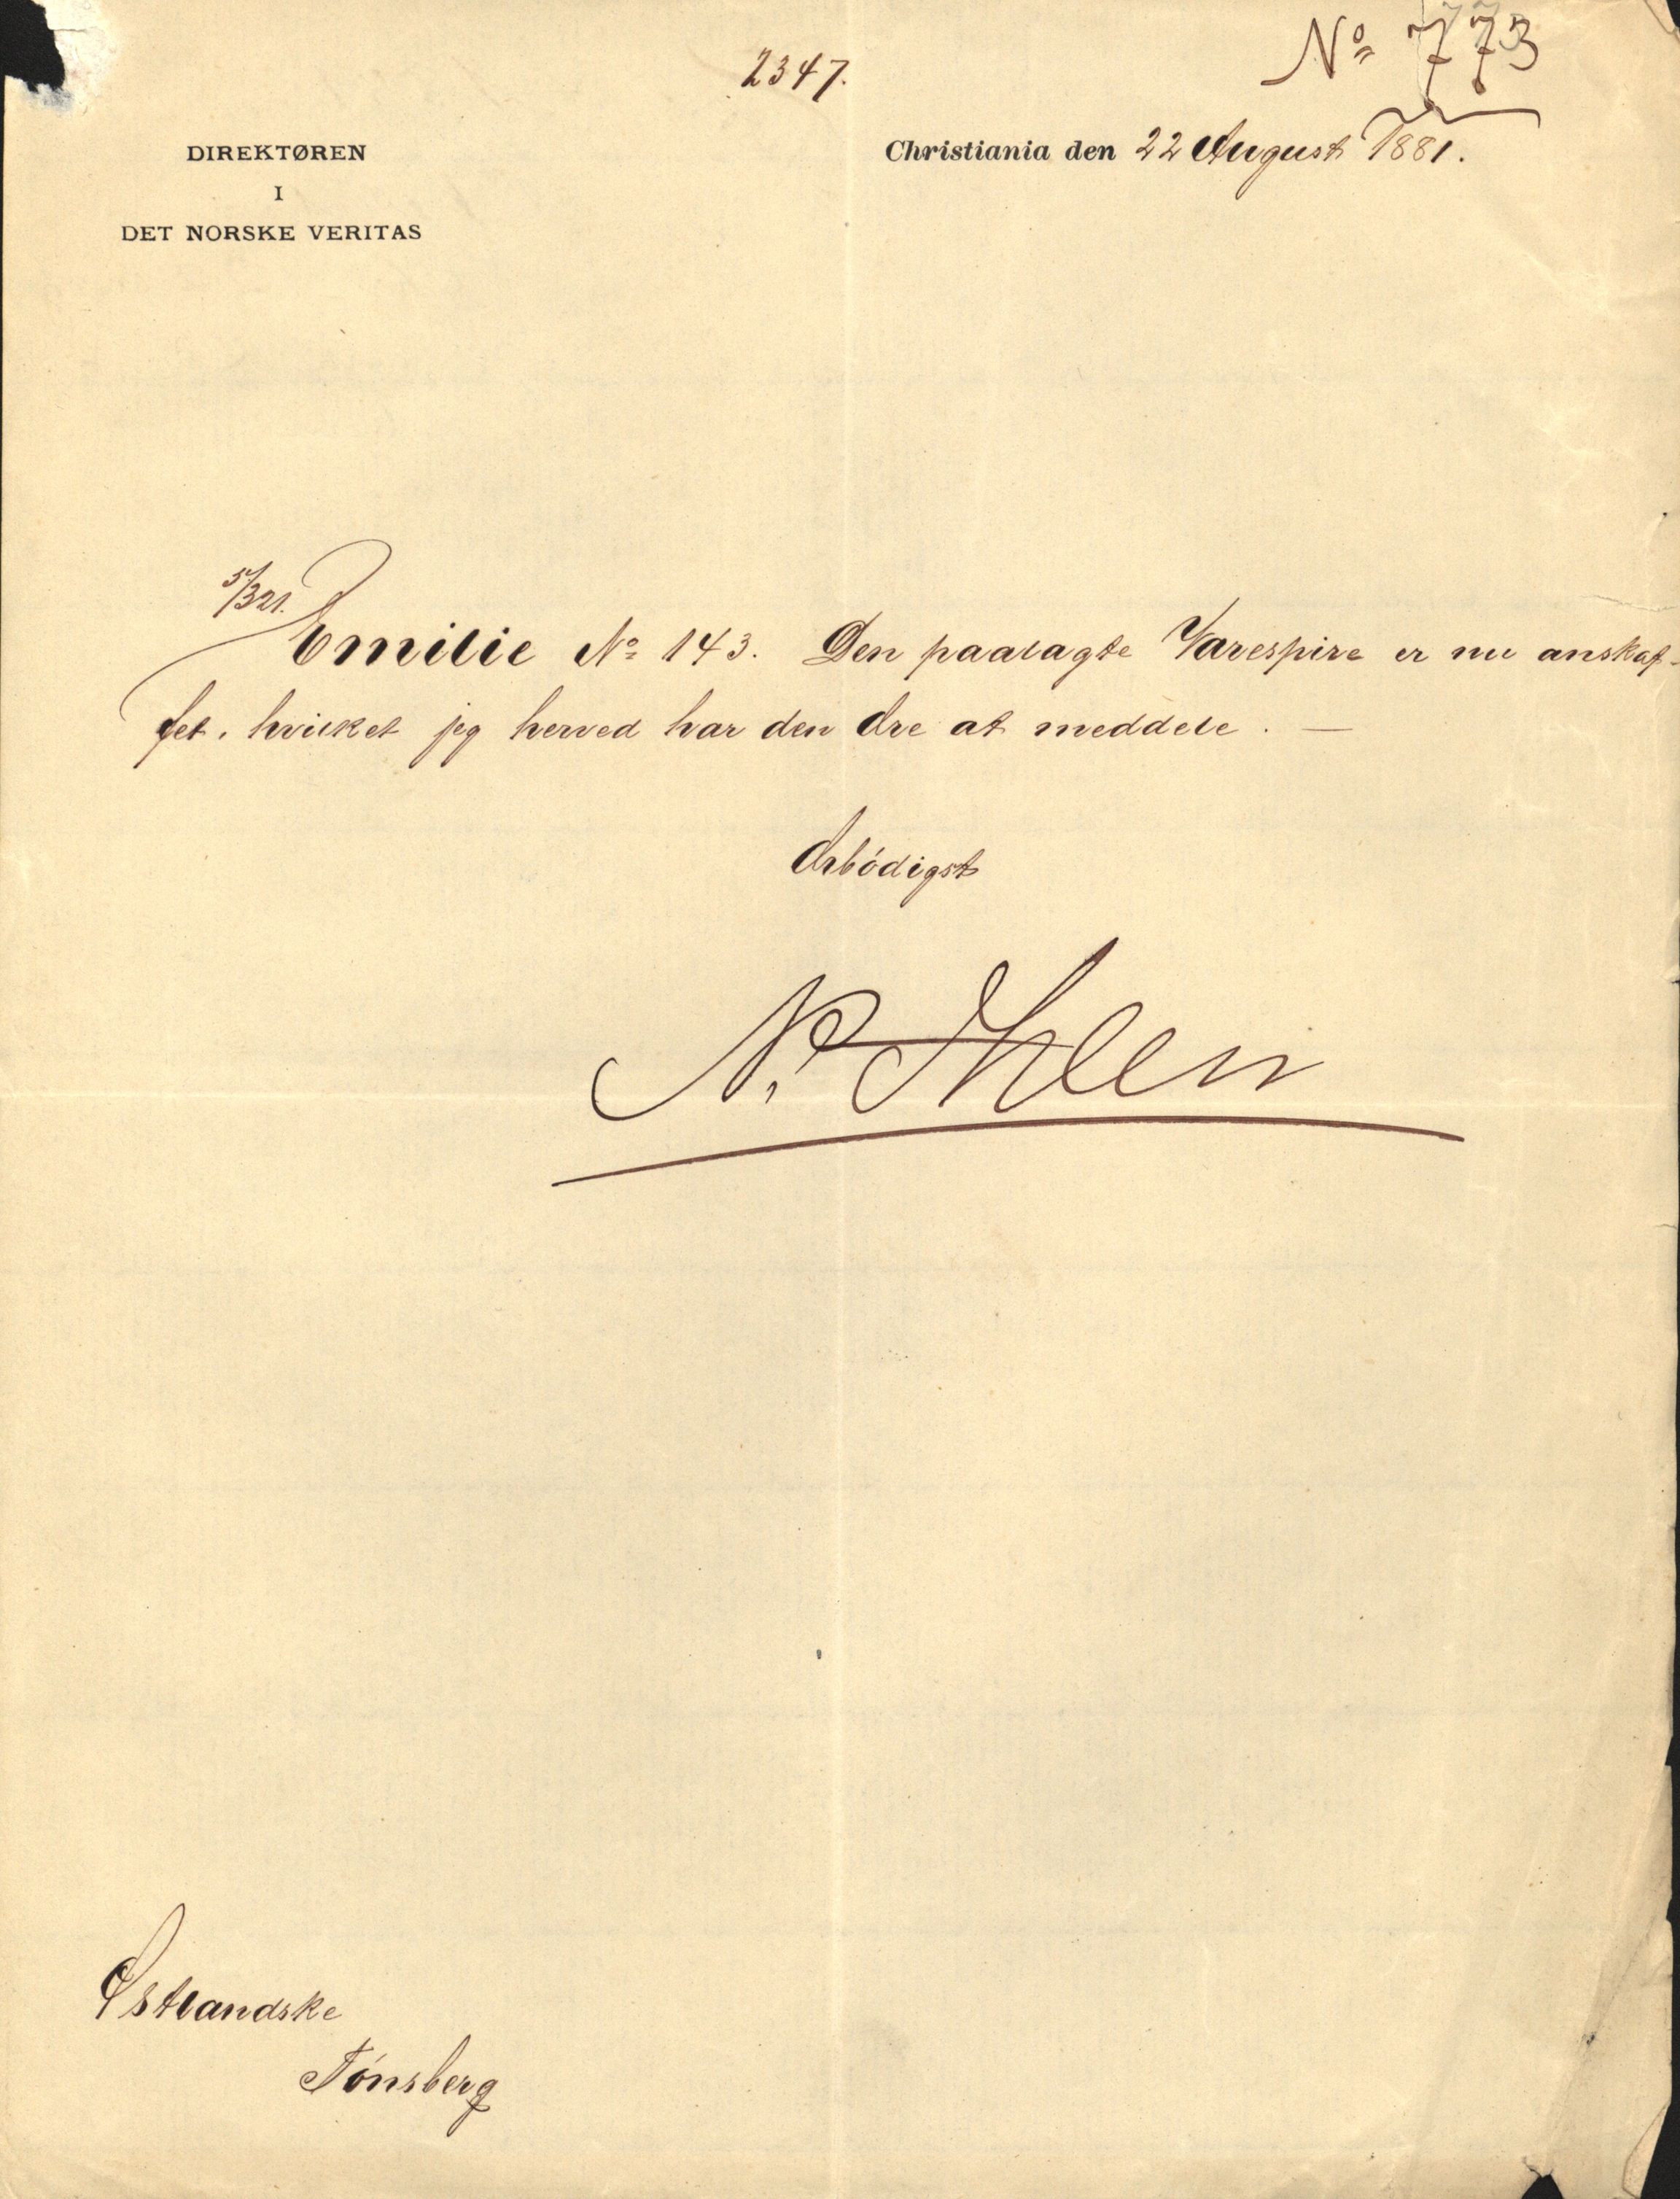 No 773
2347.
DIREKTØREN
I
DET NORSKE VERITAS
Christiania den 22 August 1881.
5/321.
Emilie No 143. Den paalagte Varespire er nu anskaf-
fet, hvilket jeg herved har den Ære at meddele. —
Ærbödigst
N. Ihlen
Østlandske
Tönsberg